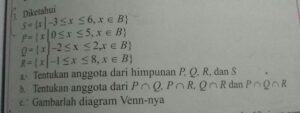 3. Diketahui
S = {x | -3 ≤ x ≤ 6, x ∈ B}
P = {x | 0 ≤ x ≤ 5, x ∈ B}
Q = {x | -2 ≤ x ≤ 2, x ∈ B}
R = {x | -1 ≤ x ≤ 8, x ∈ B}
a. Tentukan anggota dari himpunan P, Q, R, dan S
b. Tentukan anggota dari P ∩ Q, P ∩ R, Q ∩ R dan P ∩ Q ∩ R
c. Gambarlah diagram Venn-nya